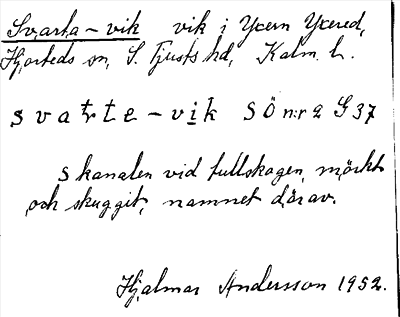 Svarta-vik vik i Yxern Yxered,
Hjorteds sn, S. Tjusts hd, Kalm. l.
svatrte-vik SÖ n:r 2 G 37
S kanalen vid tullskogen, mörkt
och skuggit, namnet därav.
Hjalmar Andersson 1952.